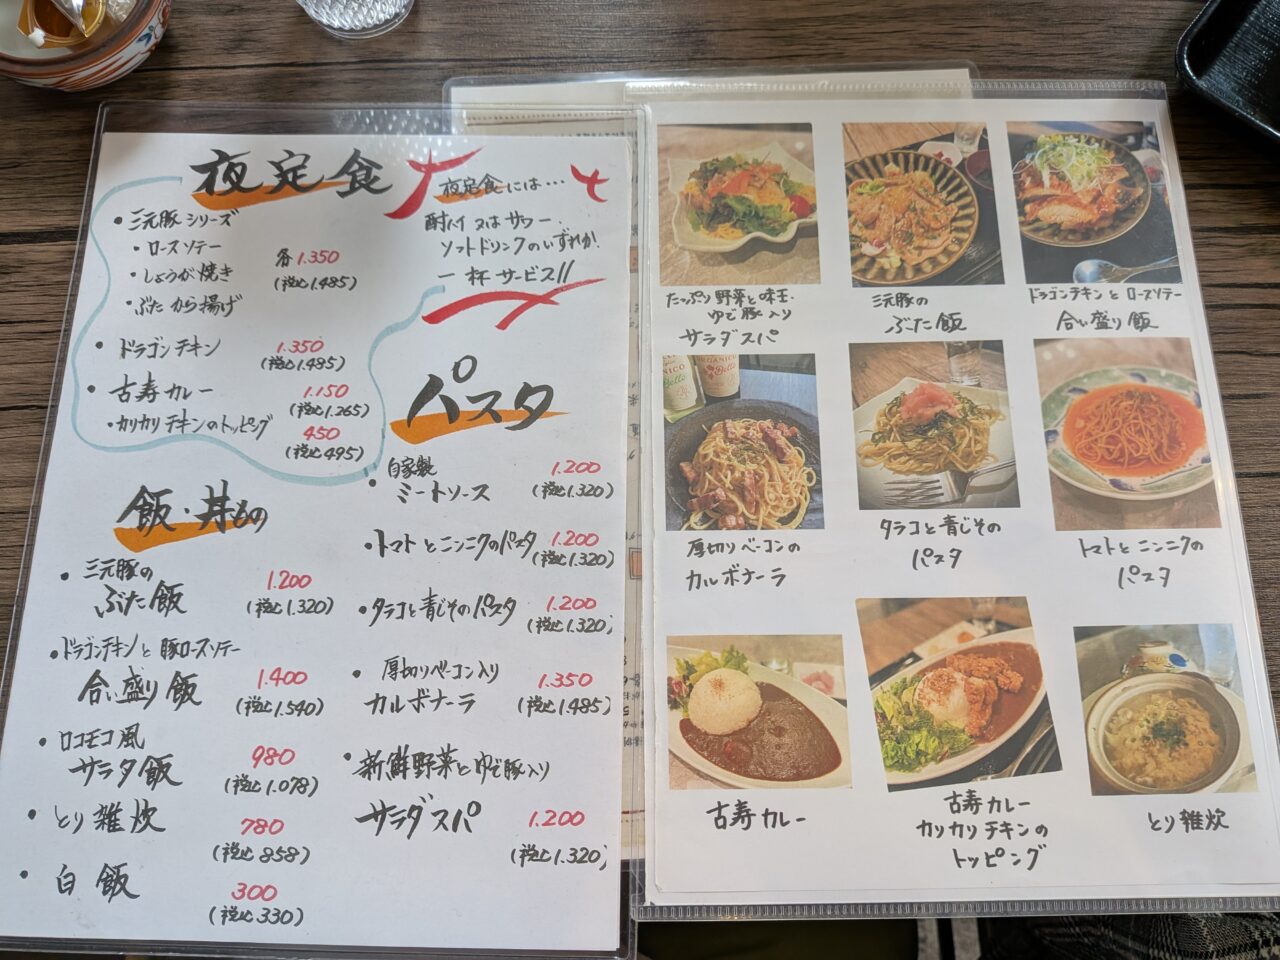 夜定食
・三元豚シリーズ
・ロースソテー
・しょうが焼き
・ぶたから揚げ
各1.350
(税込1.485)
・ドラゴンチキン
1.350
(税込1.485)
・古寿カレー
1.150
(税込1.265)
・カリカリチキンのトッピング
450
(税込495)
夜定食には…
酎ハイ又はサワー.
ソフトドリンクのいずれか!
一杯サービス!!
飯・丼もの
・三元豚の
ぶた飯
1.200
(税込1.320)
・ドラゴンチキンと豚ロースソテー
合い盛り飯
1.400
(税込1.540)
・ロコモコ風
サラダ飯
980
(税込1.078)
・とり雑炊
780
(税込858)
・白飯
300
(税込330)
パスタ
・自家製
ミートソース
1.200
(税込1.320)
・トマトとニンニクのパスタ
1.200
(税込1.320)
・タラコと青じそのパスタ
1.200
(税込1.320)
・厚切りベーコン入り
カルボナーラ
1.350
(税込1.485)
・新鮮野菜とゆで豚入り
サラダスパ
1.200
(税込1.320)
たっぷり野菜と味玉.
ゆで豚入り
サラダスパ
三元豚の
ぶた飯
ドラゴンチキンとロースソテー
合い盛り飯
厚切りベーコンの
カルボナーラ
タラコと青じその
パスタ
トマトとニンニクの
パスタ
古寿カレー
古寿カレー
カリカリチキンの
トッピング
とり雑炊